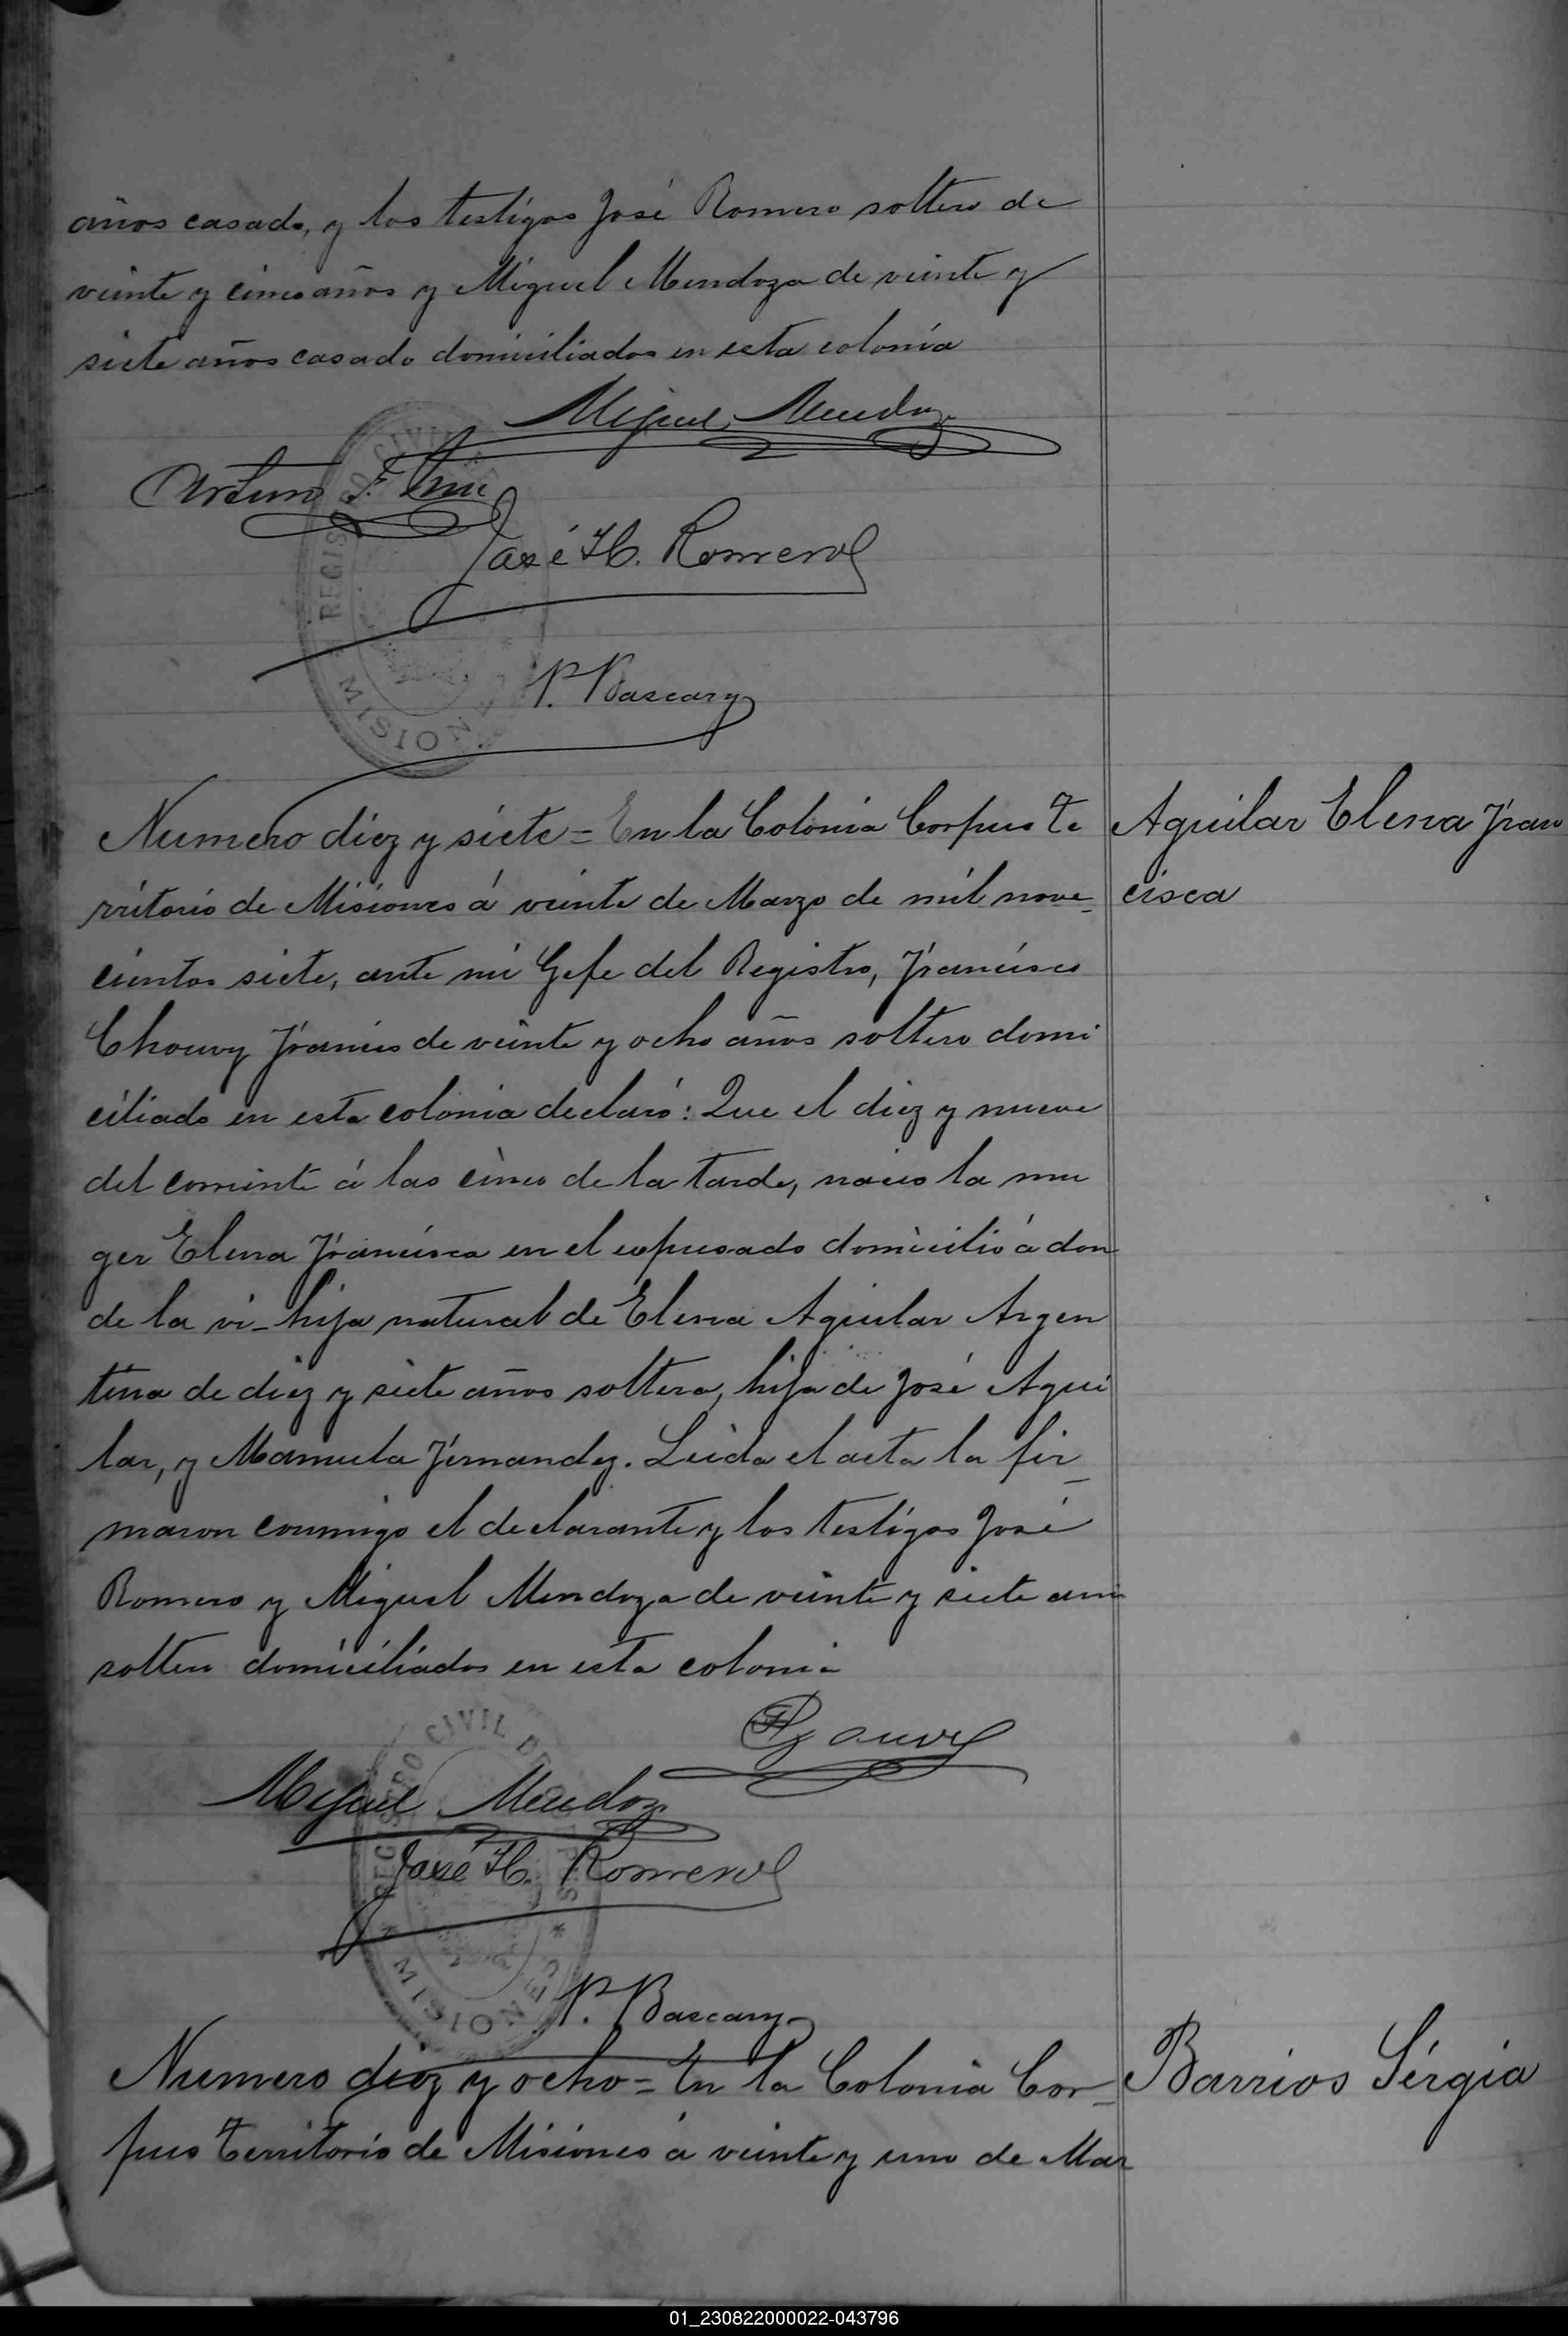 años casado, y los testigos José Romero soltero de
veinte y cinco años y Miguel Mendoza de veinte y
siete años casado domiciliados en esta colonia
Miguel Mendoza
Arturo F.
José H. Romero
P. Bascary
REGISTRO CIVIL
MISIONES
Numero diez y siete = En la Colonia Corpus Te
rritorio de Misiones á veinte de Marzo de mil nove-
cientos siete, ante mi Gefe del Registro, Francisco
Chouvy Francés de veinte y ocho años soltero domi
ciliado en esta colonia declaró: Que el diez y nueve
del corriente á las cinco de la tarde, nació la mu
ger Elena Francisca en el expresado domicilio á don
de la vi_ hija natural de Elena Aguilar Argen
tina de diez y siete años soltera, hija de José Agui
lar, y Manuela Fernandez. Leida el acta la fir_
maron conmigo el declarante y los testigos José
Romero y Miguel Mendoza de veinte y siete
soltero domiciliados en esta colonia
Aguilar Elena Fran
cisca
Miguel Mendoza
José H. Romero
P. Bascary
REGISTRO CIVIL DE
* MISIONES *
Numero diez y ocho = En la Colonia Cor_
pus Territorio de Misiones á veinte y uno de Mar
Barrios Sérgia
01_230822000022-043796